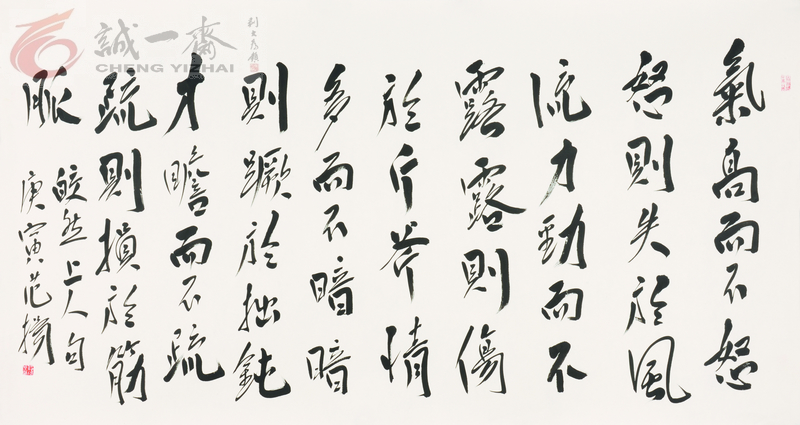 氣高而不怒
怒則失於風
流力勁而不
露露則傷
於斤斧情
多而不暗暗
則蹶於拙鈍
才瞻而不疏
疏則損於筋
脈
皎然上人句
庚寅范揚
誠一齋
CHENG YIZHAI